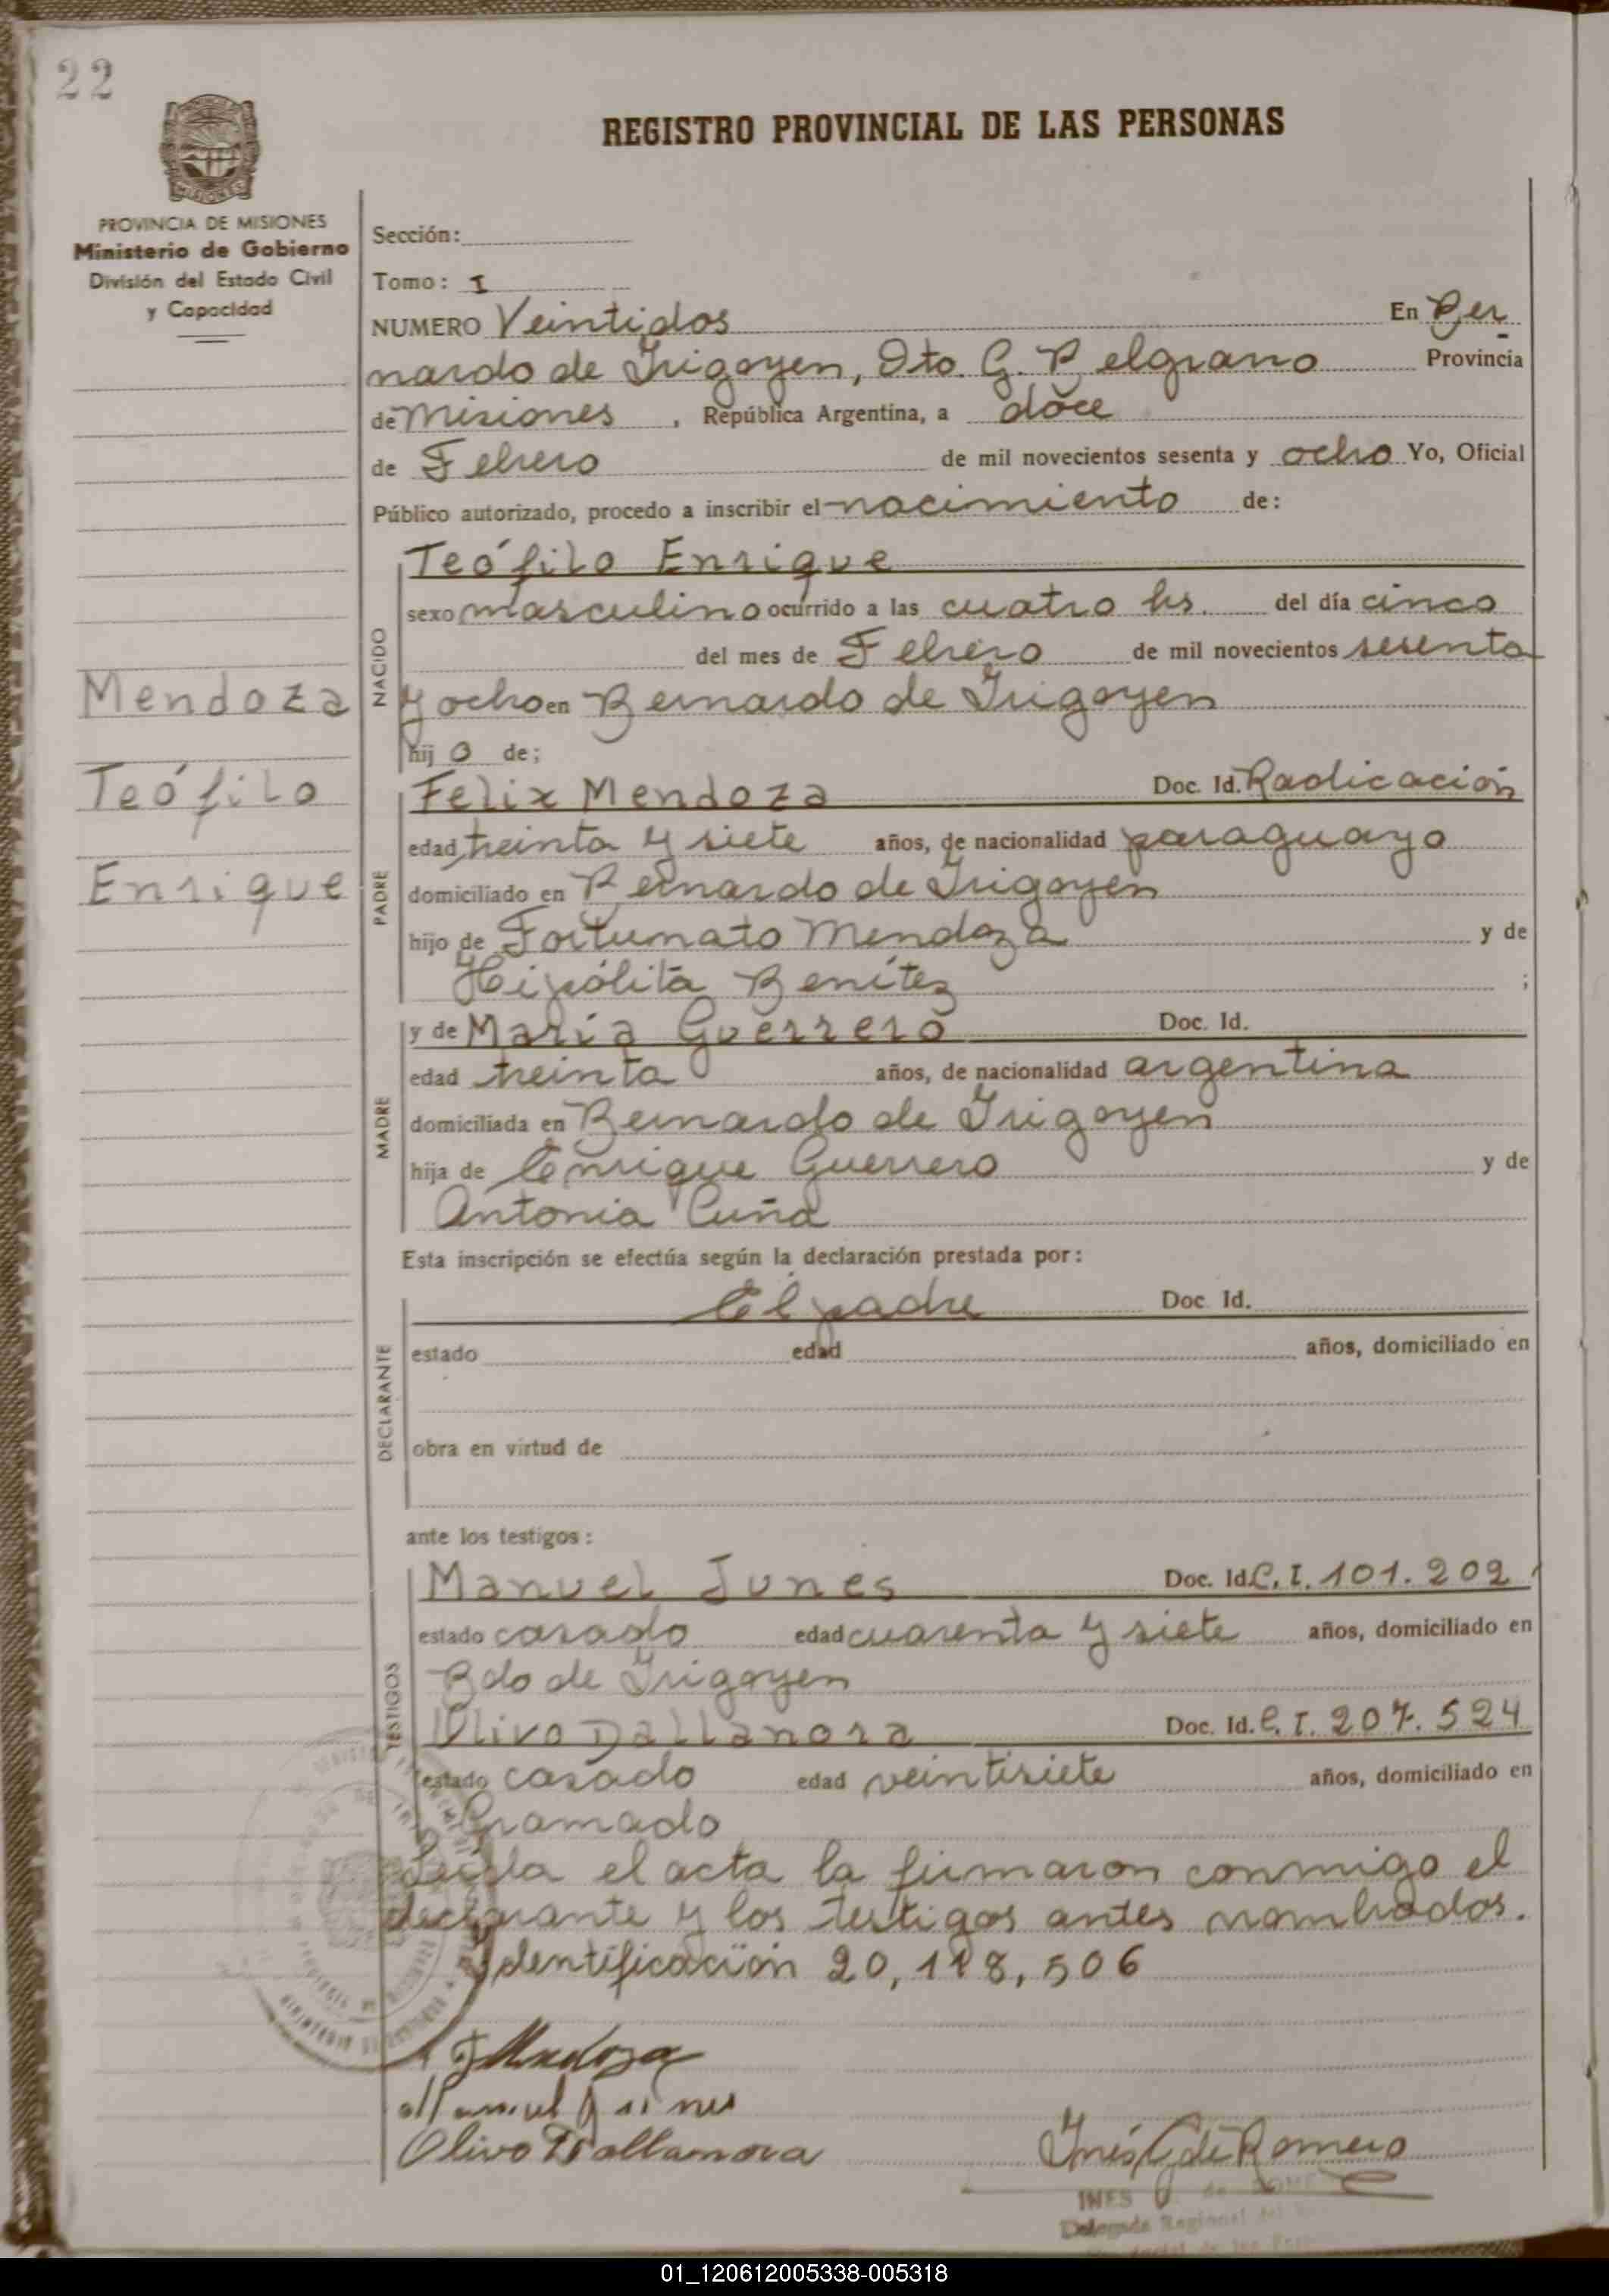 22
REGISTRO PROVINCIAL DE LAS PERSONAS
MISIONES
PROVINCIA DE MISIONES
Ministerio de Gobierno
División del Estado Civil
y Capacidad
Sección:
Tomo: I
NUMERO Veintidos En Ber
nardo de Irigoyen, Dto. G. Belgrano Provincia
de Misiones, República Argentina, a doce
de Febrero de mil novecientos sesenta y ocho Yo, Oficial
Público autorizado, procedo a inscribir el nacimiento de:
Teófilo Enrique
sexo masculino ocurrido a las cuatro hs. del día cinco
del mes de Febrero de mil novecientos sesenta
y ocho en Bernardo de Irigoyen
hijo de;
NACIDO
Mendoza
Teófilo
Enrique
Felix Mendoza Doc. Id. Radicación
edad treinta y siete años, de nacionalidad paraguayo
domiciliado en Bernardo de Irigoyen
hijo de Fortunato Mendoza y de
Hipólita Benítez ;
PADRE
y de María Guerrero Doc. Id.
edad treinta años, de nacionalidad argentina
domiciliada en Bernardo de Irigoyen
hija de Enrique Guerrero y de
Antonia Cuña
MADRE
Esta inscripción se efectúa según la declaración prestada por:
El padre Doc. Id.
estado edad años, domiciliado en
obra en virtud de
DECLARANTE
ante los testigos:
Manuel Junes Doc. Id. C. I. 101.202
estado casado edad cuarenta y siete años, domiciliado en
Bdo de Irigoyen
Olivo Dallanora Doc. Id. C. I. 207.524
estado casado edad veintisiete años, domiciliado en
Gramado
TESTIGOS
Leída el acta la firmaron conmigo el
declarante y los testigos antes nombrados.
Identificación 20,118,506
F Mendoza
Manuel Junes
Olivo Dallanora
Inés G de Romero
INES G. de ROME
Delegada Regional del
01_120612005338-005318